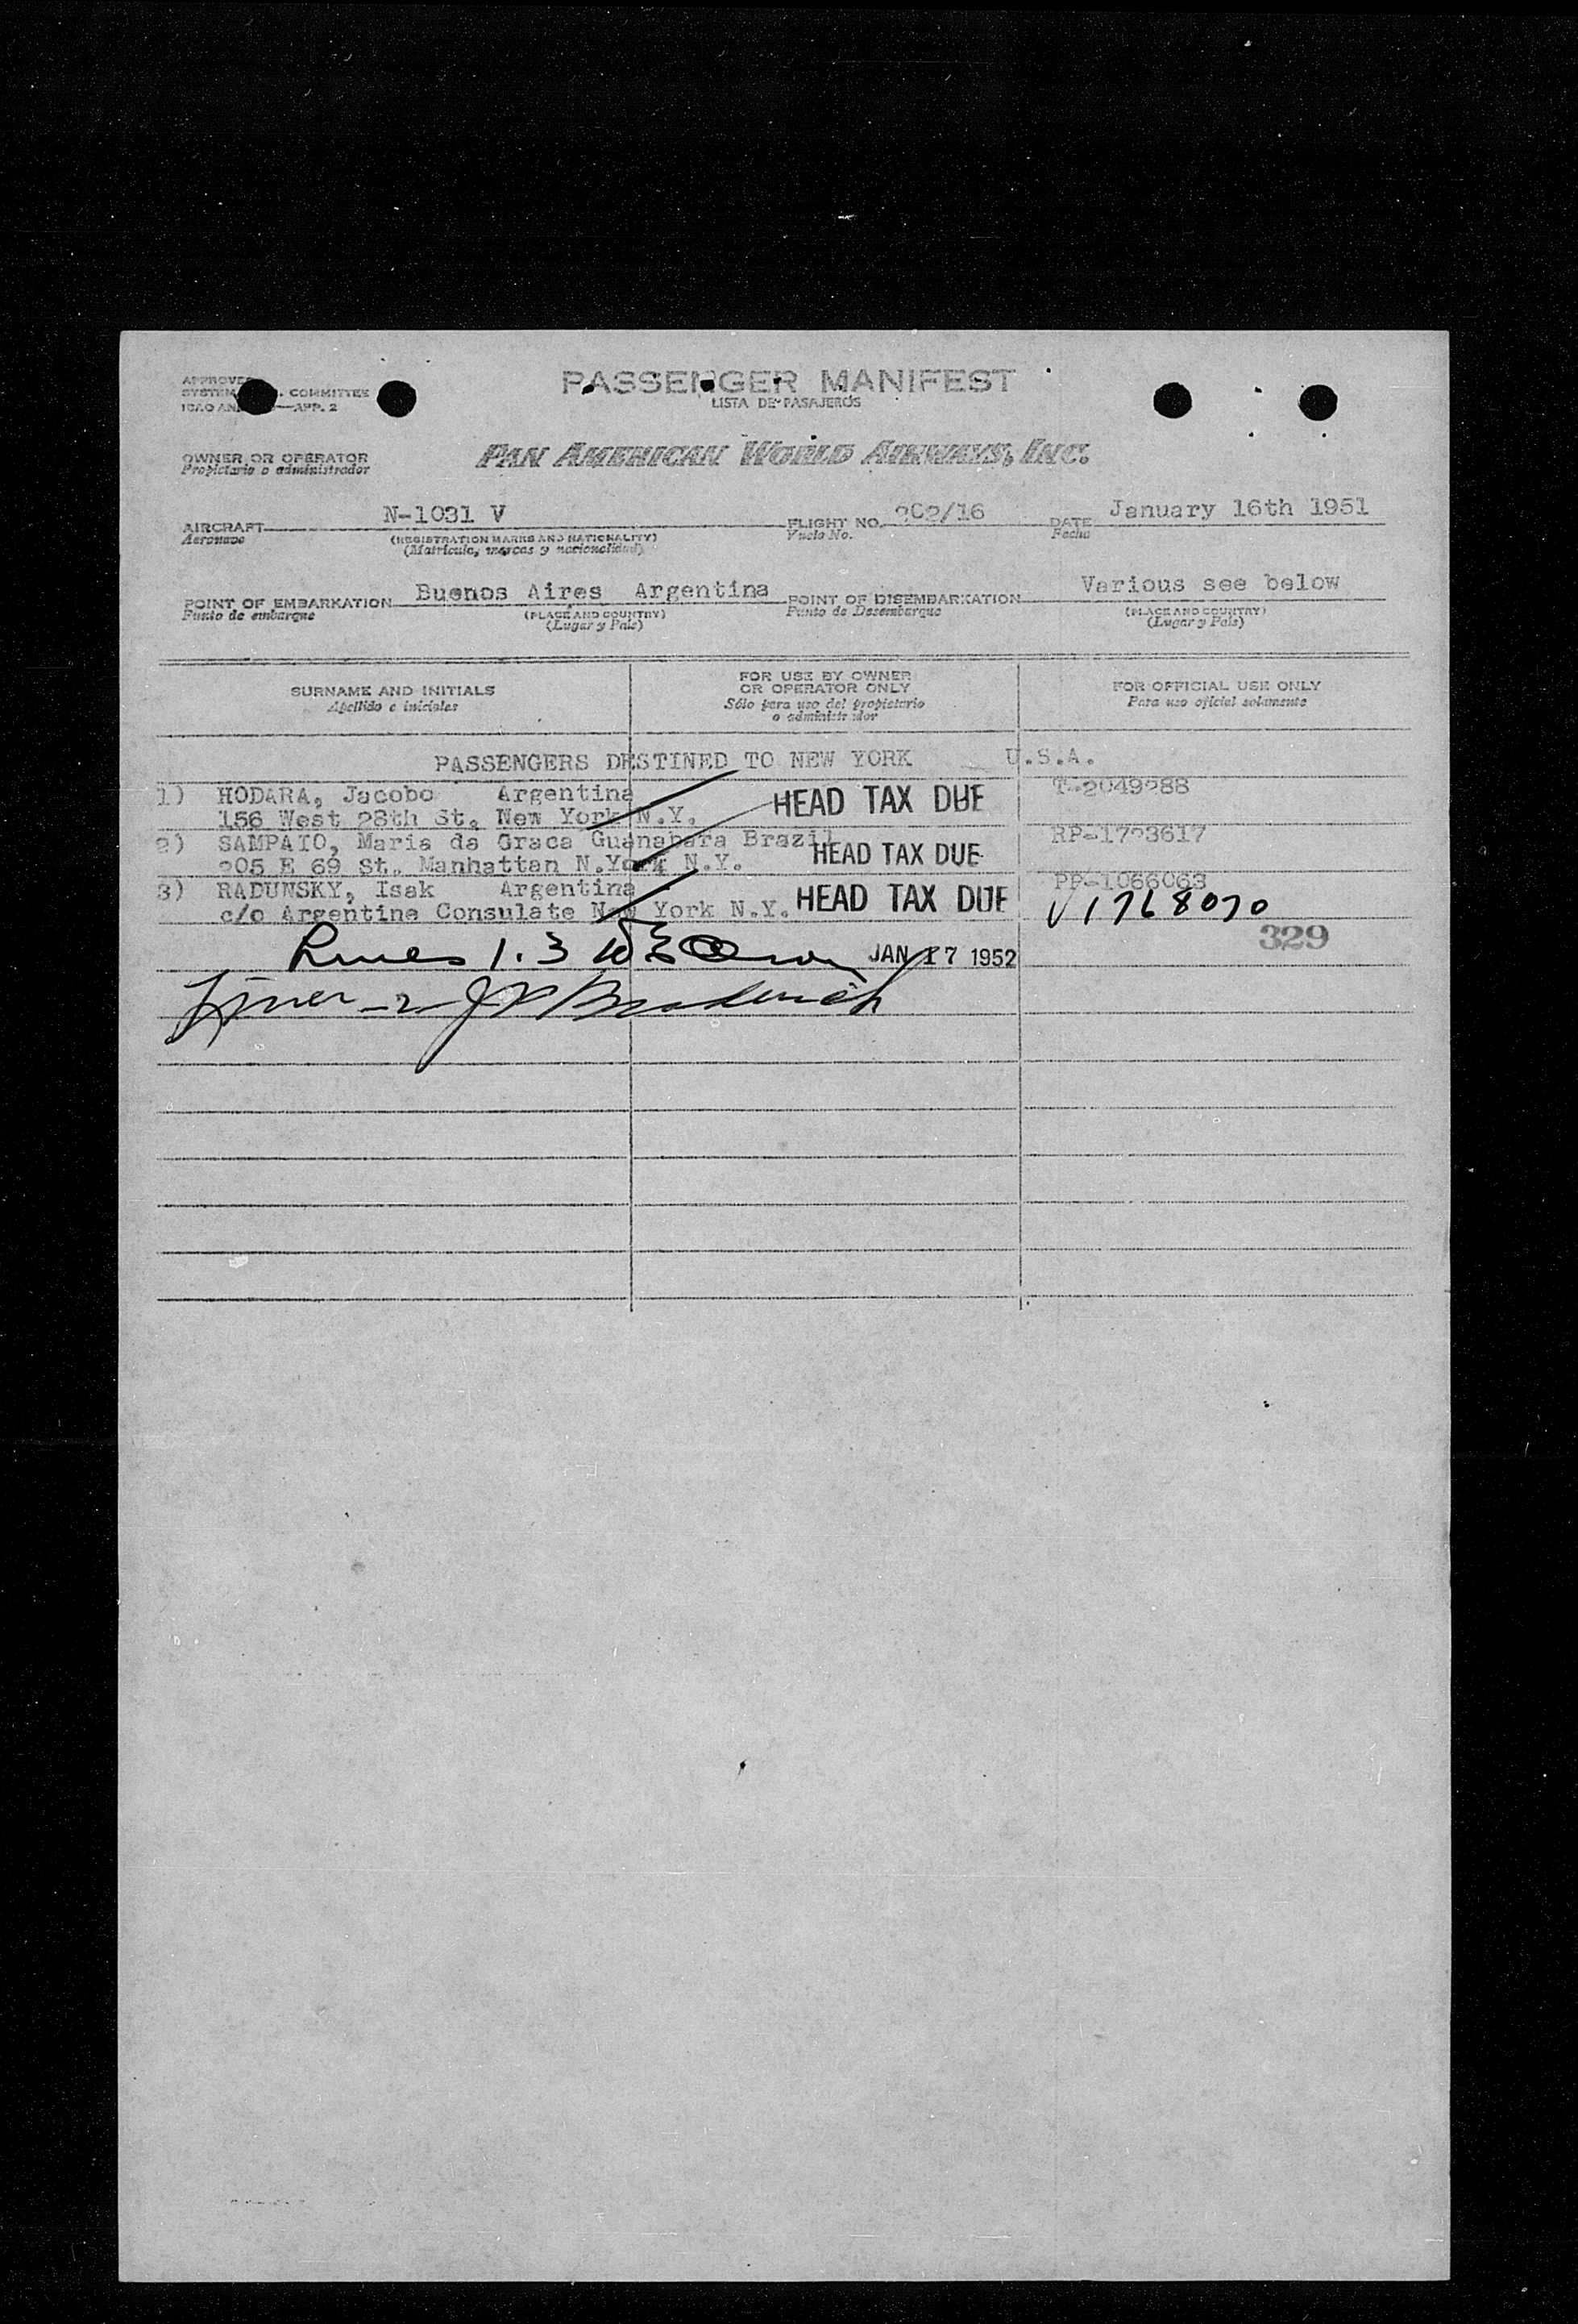 PASSENGER MANIFEST
LISTA DE PASAJEROS
COMMITTEE
APP. 2
OWNER OR OPERATOR
Propietario o administrador
PAN AMERICAN WORLD AIRWAYS, INC.
AIRCRAFT N-1031 V FLIGHT NO. 202/16 DATE January 16th 1951
Aeronave (REGISTRATION MARKS AND NATIONALITY) Vuelo No. Fecha
(Matricula, marcas y nacionalidad)
POINT OF EMBARKATION Buenos Aires Argentina POINT OF DISEMBARKATION Various see below
Punto de embarque (PLACE AND COUNTRY) Punto de Desembarque (PLACE AND COUNTRY)
(Lugar y Pais) (Lugar y Pais)
SURNAME AND INITIALS
Apellido e iniciales
FOR USE BY OWNER
OR OPERATOR ONLY
Sólo para uso del propietario
o administrador
FOR OFFICIAL USE ONLY
Para uso oficial solamente
PASSENGERS DESTINED TO NEW YORK U.S.A.
1) HODARA, Jacobo Argentina HEAD TAX DUE T-2049288
156 West 28th St. New York N.Y.
2) SAMPAIO, Maria da Graca Guanabara Brazil HEAD TAX DUE RP-1723617
205 E 69 St. Manhattan N.York N.Y.
3) RADUNSKY, Isak Argentina HEAD TAX DUE PP-1066063
c/o Argentine Consulate New York N.Y. V1768070
329
Lines 1.3 JAN 17 1952